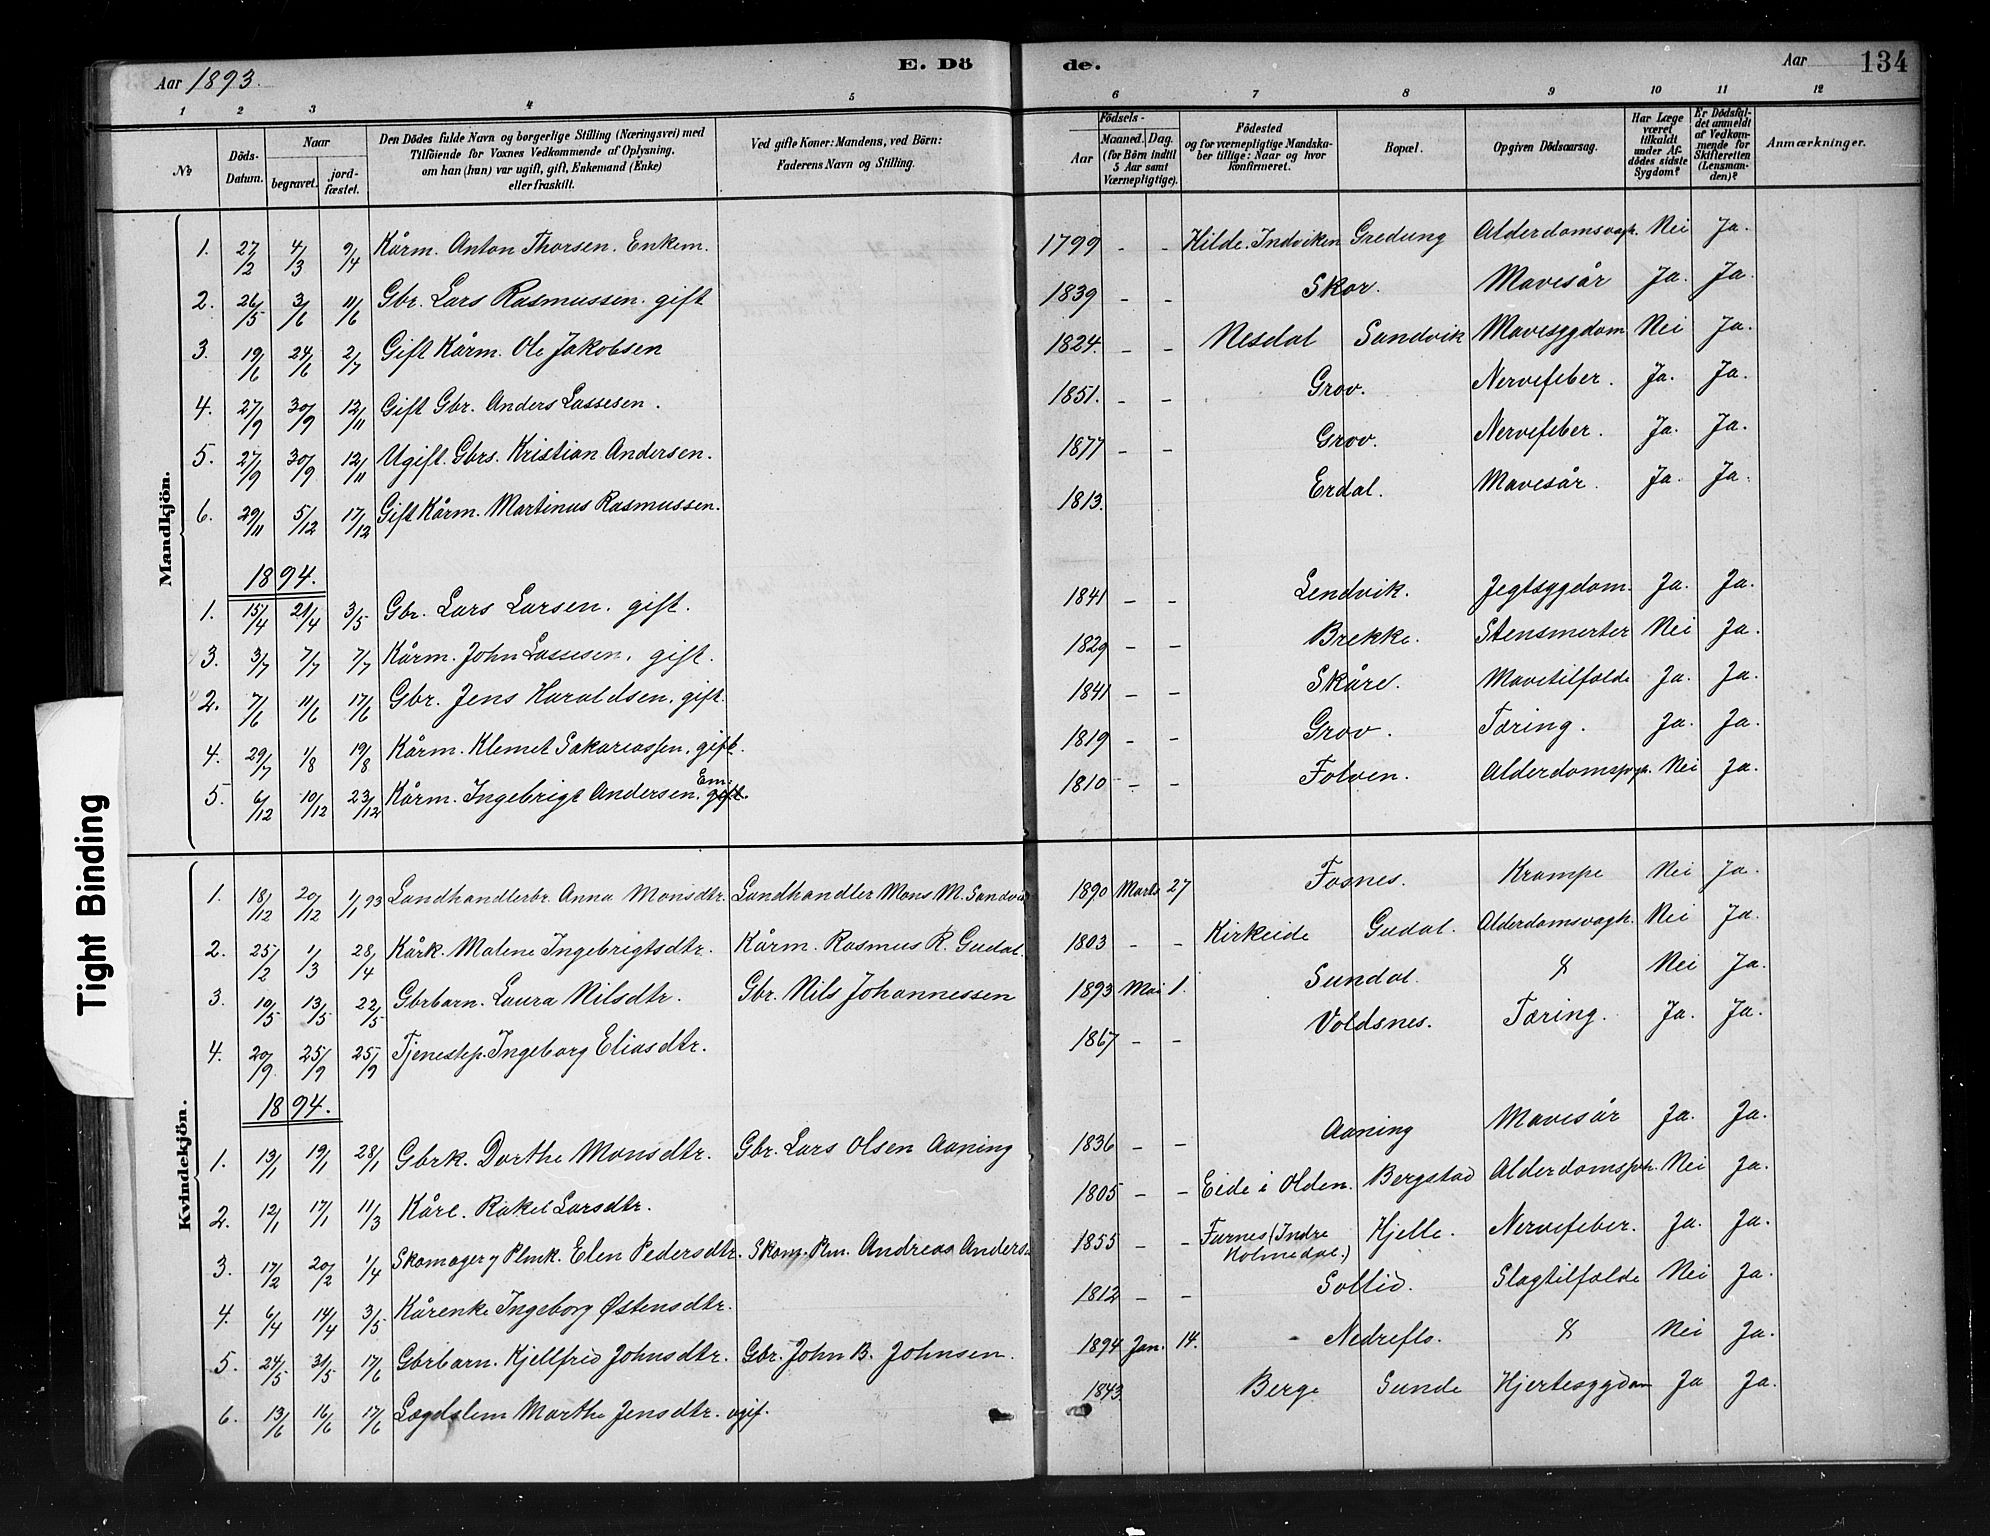 Aar 1893.
E. Dö de.
Aar 134
1 2 3 4 5 6 7 8 9 10 11 12
№ Döds-Datum. Naar begravet. jord-fæstet. Den Dödes fulde Navn og borgerlige Stilling (Næringsvei) med Tilföiende for Voxnes Vedkommende af Oplysning, om han (hun) var ugift, gift, Enkemand (Enke) eller fraskilt. Ved gifte Koner: Mandens, ved Börn: Faderens Navn og Stilling. Födsels- Aar Maaned. Dag. (for Börn indtil 5 Aar samt Værnepligtige). Födested og for værnepligtige Mandska-ber tillige: Naar og hvor konfirmeret. Bopæl. Opgiven Dödsaarsag. Har Læge været tilkaldt under Af-dödes sidste Sygdom? Er Dödsfal-det anmeldt af Vedkom-mende for Skifteretten (Lensman-den)? Anmærkninger.
Mandkjön.
1. 27/2 4/3 9/4 Kårm. Anton Thorsen. Enkem. 1799 - - Hilde. Indviken Gredung Alderdomsvagh. Nei Ja.
2. 26/5 3/6 11/6 Gbr. Lars Rasmussen. gift 1839 - - Skor. Mavesår Ja. Ja.
3. 19/6 24/6 2/7 Gift Kårm. Ole Jakobsen 1824. - - Nesdal Sandvik Mavesygdom Nei Ja.
4. 27/9 30/9 12/11 Gift Gbr. Anders Lassesen. 1851. - - Grov. Nervefeber. Ja. Ja.
5. 27/9 30/9 12/11 Ugift. Gbrs. Kristian Andersen. 1877 - - Grov. Nervefeber. Ja. Ja.
6. 29/11 5/12 17/12 Gift Kårm. Martinus Rasmussen. 1813. Erdal. Mavesår. Ja. Ja.
1894.
1. 15/4 21/4 3/5 Gbr. Lars Larsen. gift. 1841 - - Lendvik. Jegtsygdom. Ja. Ja.
3. 3/7 7/7 7/7 Kårm. John Lassesen. gift. 1829 - - Brekke. Stensmerter Nei Ja.
2. 7/6 11/6 17/6 Gbr. Jens Haraldsen. gift. 1841 - - Skåre. Mavetilfælde Ja. Ja.
4. 29/7 1/8 19/8 Kårm. Klemet Sakariassen. gift. 1819 - - Grov. Tæring. Ja. Ja.
5. 6/12 10/12 23/12 Kårm. Ingebrigt Andersen. Em. gift. 1810 - - Folven. Alderdomssvagh. Nei Ja.
Kvindekjön.
1. 18/12 20/12 1/1 93 Landhandlerbr. Anna Monsdtr. Landhandler Mons M. Sandvik 1890 Marts 27 Fosnes. Krampe Nei Ja.
2. 25/2 1/3 28/4 Kårk. Malene Ingebrigtsdtr. Kårm. Rasmus R. Gudal. 1803 - - Kirkeide Gudal. Alderdomsvagh. Nei Ja.
3. 10/5 13/5 22/5 Gbrbarn. Laura Nilsdtr. Gbr. Nils Johannessen 1893 Mai 1. Sundal. & Nei Ja.
4. 20/9 25/9 25/9 Tjenestep. Ingeborg Eliasdtr. 1867 - - Voldsnes. Tæring. Ja. Ja.
1894.
1. 13/1 19/1 28/1 Gbrk. Dorthe Monsdtr. Gbr. Lars Olsen Aaning 1836 - - Aaning Mavesår Ja. Ja.
2. 12/1 17/1 11/3 Kåre. Rakel Larsdtr. 1805 - - Eide i Olden. Bergstad Alderdomssvgh. Nei Ja.
3. 17/2 20/2 1/4 Skomager y Plmk. Elen Pedersdtr. Skom. Plm. Andreas Anders. 1855 - - Furnes (Indre Holmedal.) Hjelle. Nervefeber. Ja. Ja.
4. 6/4 14/4 3/5 Kårenke Ingeborg Østensdtr. 1812 - - Sollid. Slagtilfælde Nei Ja.
5. 24/5 31/5 17/6 Gbrbarn. Kjellfrid Johnsdtr. Gbr. John B. Johnsen. 1894 Jan. 14. Nedreflo. & Nei Ja.
6. 13/6 16/6 17/6 Lægdslem Marthe Jensdtr. ugif. 1843. Berge Sunde Hjertesygdom Ja Ja.
Tight Binding